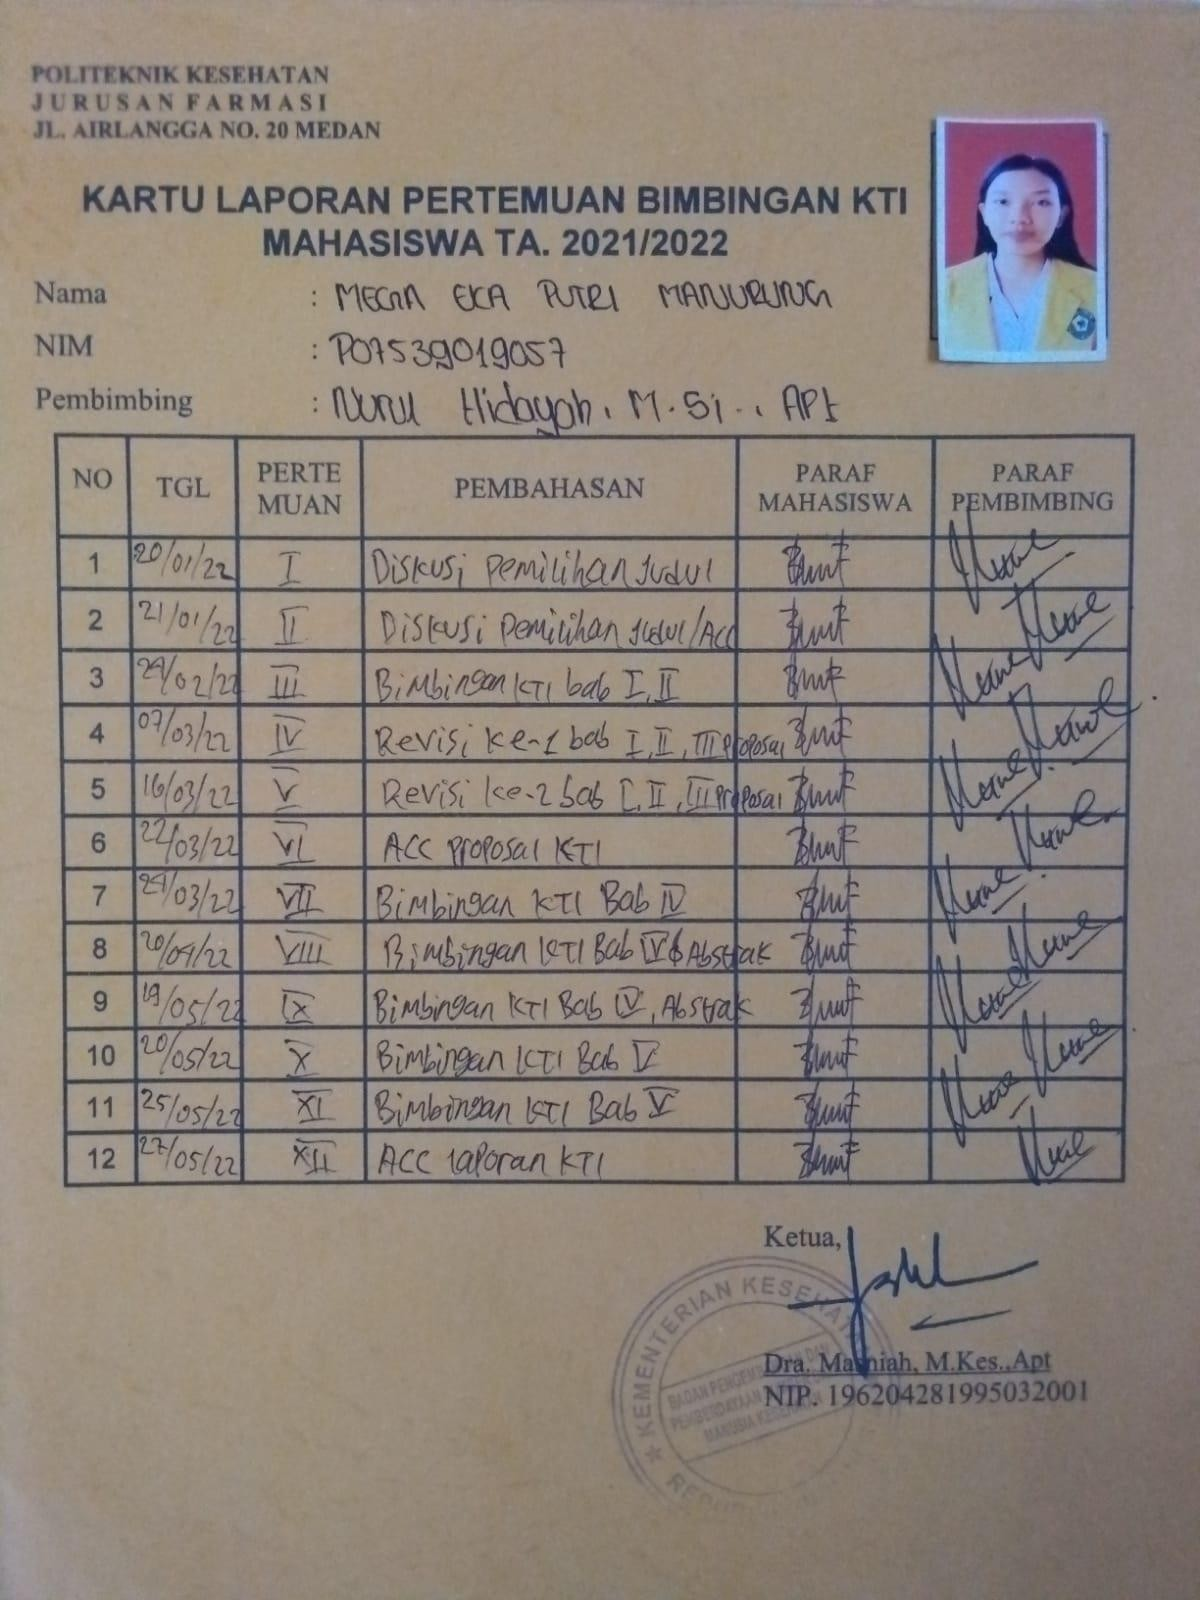 POLITEKNIK KESEHATAN
JURUSAN FARMASI
JL. AIRLANGGA NO. 20 MEDAN
KARTU LAPORAN PERTEMUAN BIMBINGAN KTI
MAHASISWA TA. 2021/2022
Nama : MEGA EKA PUTRI MANURUNG
NIM : P07539019057
Pembimbing : Nurul Hidayah, M.Si., Apt
NO TGL PERTE MUAN PEMBAHASAN PARAF MAHASISWA PARAF PEMBIMBING
1 20/01/22 I Diskusi Pemilihan Judul
2 21/01/22 II Diskusi Pemilihan Judul/Acc
3 24/02/22 III Bimbingan KTI bab I, II
4 07/03/22 IV Revisi ke-1 bab I, II, III Proposal
5 16/03/22 V Revisi ke-2 bab I, II, III Proposal
6 22/03/22 VI ACC Proposal KTI
7 24/03/22 VII Bimbingan KTI Bab IV
8 20/04/22 VIII Bimbingan KTI Bab IV & Abstrak
9 19/05/22 IX Bimbingan KTI Bab IV, Abstrak
10 20/05/22 X Bimbingan KTI Bab V
11 25/05/22 XI Bimbingan KTI Bab V
12 27/05/22 XII ACC laporan KTI
Ketua,
Dra. Masniah, M.Kes.,Apt
NIP. 196204281995032001
KEMENTERIAN KESEHATAN
BADAN PENGEMBANGAN DAN
PEMBERDAYAAN
MANUSIA KESEHATAN